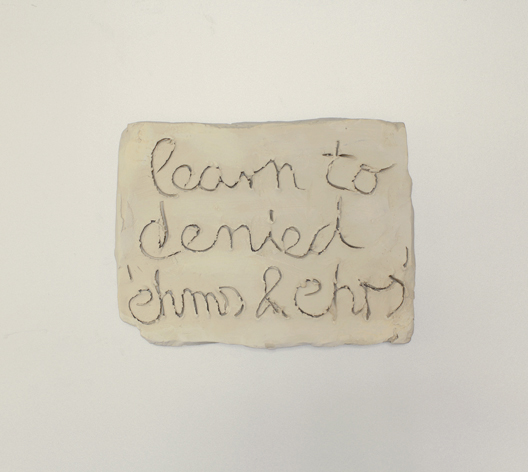 learn to
denied
'ehms & ehrs'